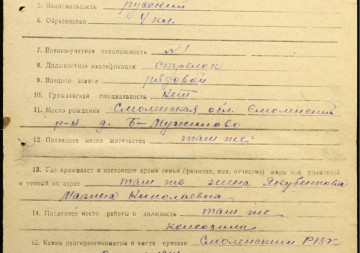 5. Национальность русский
6. Образование 4 кл.
7. Военно-учетная специальность № 1
8. Должностная квалификация стрелок
9. Воинское звание рядовой
10. Гражданская специальность нет
11. Место рождения Смоленская обл. Смоленский
р-н д. Б-
12. Последнее место жительства там же
13. Где проживает в настоящее время семья (фамилия, имя, отчество) жены или родителей
и точный их адрес там же жена Якубенкова
Марина Николаевна
14. Последнее место работы и должность там же
колхозник
15. Каким райгорвоенкоматом и когда призван Смоленским РВК